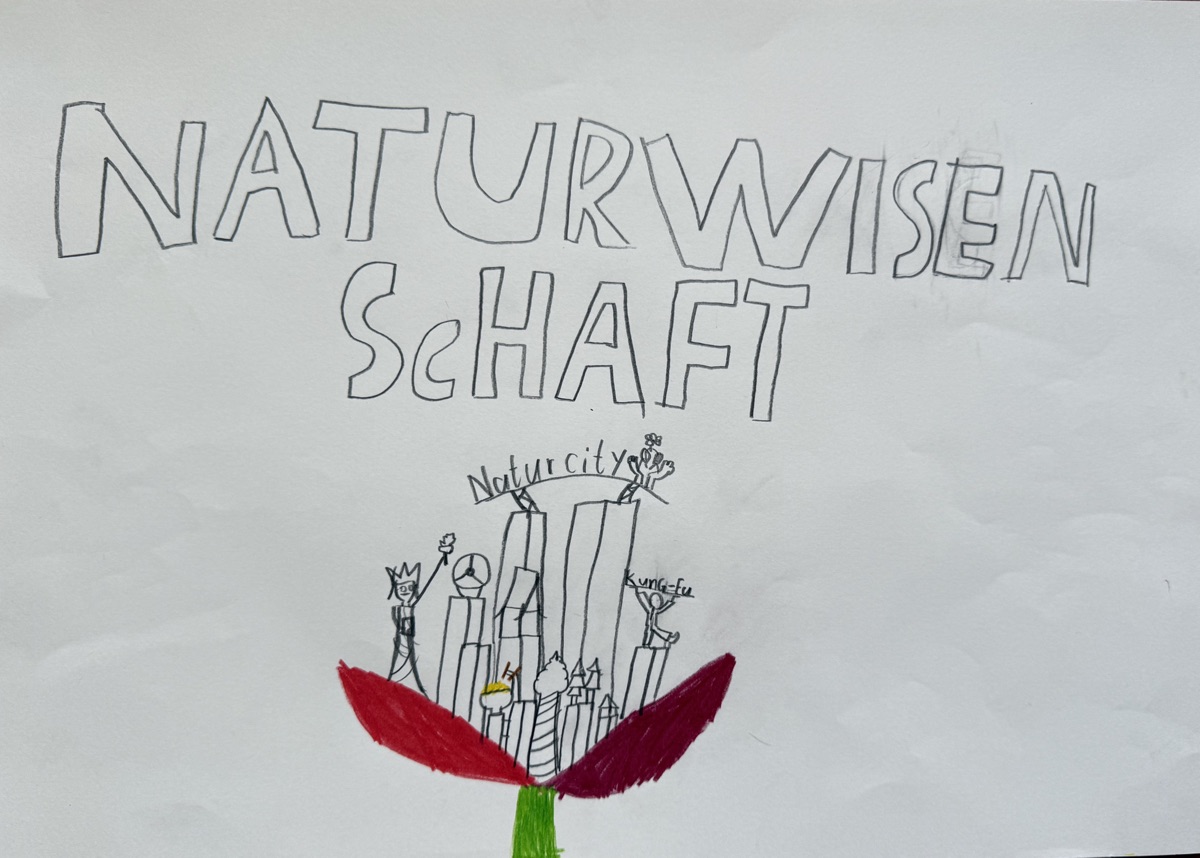 NATURWISEN
ScHAFT
Naturcity
Kung-Fu